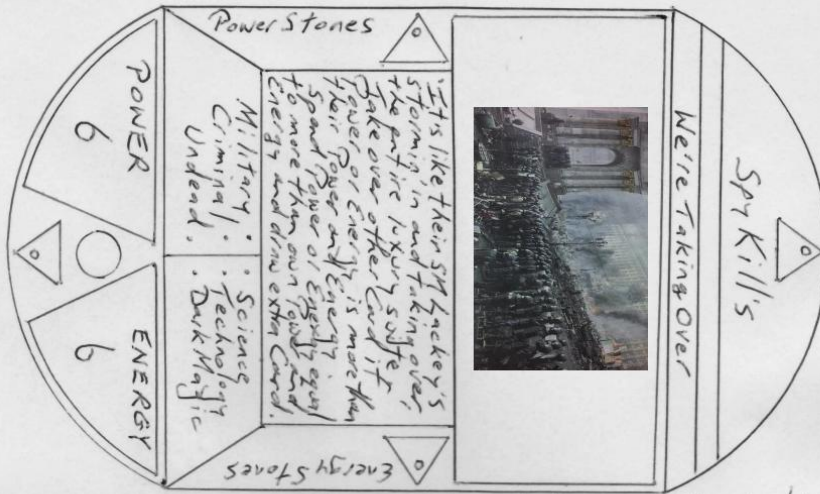 Spy Kill's
We're Taking Over
Power Stones
Energy Stones
"It's like their spy Lackey's
stormin, in and taking over
the entire luxury suite,"
Take over other Card if
Power or Energy is more than
their Power and Energy.
Spend Power or Energy equal
to more than own Power and
Energy and draw extra Card.
Military •
Criminal •
Undead •
• Science
• Technology
• Dark Magic
POWER
6
ENERGY
6